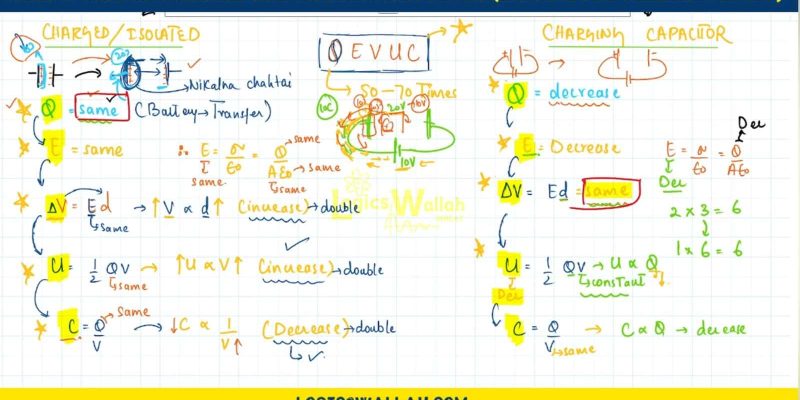 CHARGED/ISOLATED
Nikalna chahtai
Q = same (Battery → Transfer)
E = same ∴ E = σ/ε0 = Q/Aε0
same
same
same
same
ΔV = Ed → ↑ V ∝ d ↑ (increase) → double
same
U = 1/2 QV → ↑ U ∝ V ↑ (increase) → double
same
C = Q/V → ↓ C ∝ 1/V ↑ (Decrease) → double
same
Q E V U C
50-70 Times
10C
20V
10V
10V
Logics Wallah
CHARGING CAPACITOR
Q = decrease
E = Decrease E = σ/ε0 = Q/Aε0
Dec
Dec
ΔV = Ed = same
2 × 3 = 6
1 × 6 = 6
U = 1/2 QV → U ∝ Q ↓
constant
Dec
C = Q/V → C ∝ Q → decrease
same
LOGICSWALLAH.COM